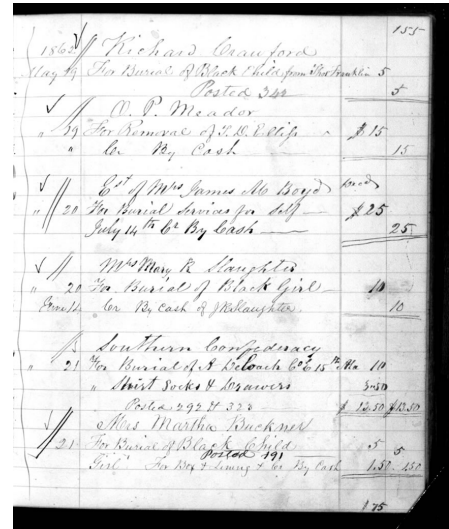 155
1862 Richard Crawford
May 19 For Burial of Black Child from Thos Franklin 5
Posted 342 5
O. P. Meador
" 29 For Removal of T. D. $15
" Cr By Cash 15
Est of Mrs James M Boyd
" 20 For Burial Services for Self $25
July 14th Cr By Cash 25
Mrs Mary R Slaughter
" 20 For Burial of Black Girl 10
June 14 Cr By Cash of Slaughter 10
Southern Confederacy
" 21 For Burial of A DeLoach Co E 15th Ala 10
" Shirt Socks & Drawers 3.50
Posted 292 & 323 $ 13.50 $13.50
Mrs Martha Buckner
" 21 For Burial of Black Child 5 5
Posted 191
Girl For Box & Lining & Cr By Cash 1.50 1.50
175